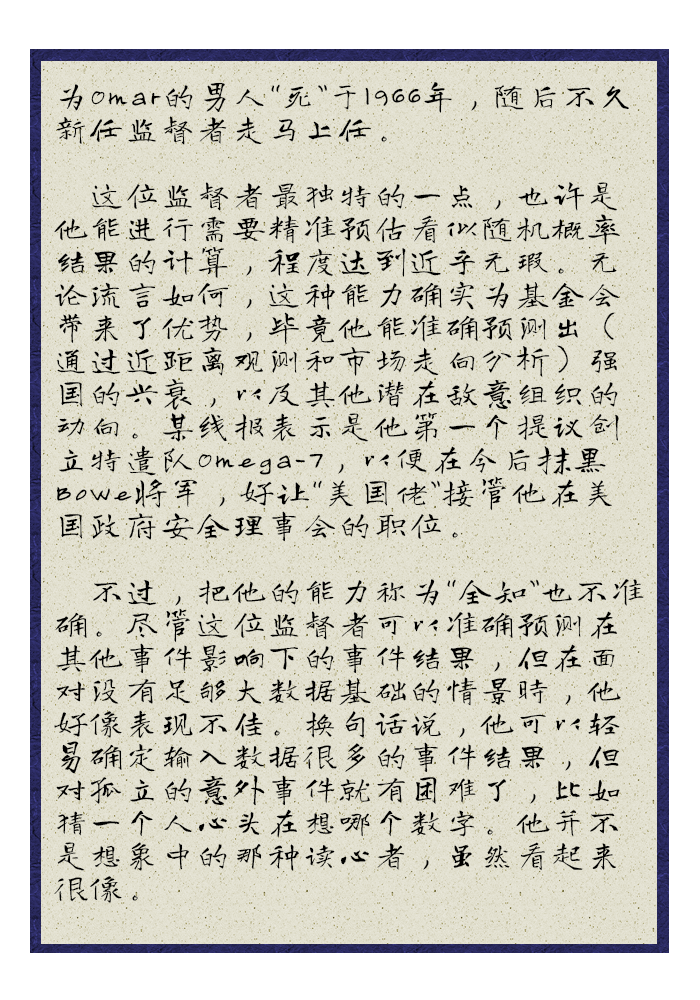 为Omar的男人“死”于1966年，随后不久
新任监督者走马上任。
这位监督者最独特的一点，也许是
他能进行需要精准预估看似随机概率
结果的计算，程度达到近乎无瑕。无
论流言如何，这种能力确实为基金会
带来了优势，毕竟他能准确预测出（
通过近距离观测和市场走向分析）强
国的兴衰，以及其他潜在敌意组织的
动向。某线报表示是他第一个提议创
立特遣队Omega-7，以便在今后抹黑
Bowe将军，好让“美国佬”接管他在美
国政府安全理事会的职位。
不过，把他的能力称为“全知”也不准
确。尽管这位监督者可以准确预测在
其他事件影响下的事件结果，但在面
对没有足够大数据基础的情景時，他
好像表现不佳。换句话说，他可以轻
易确定输入数据很多的事件结果，但
对孤立的意外事件就有团难了，比如
猜一个人心头在想哪个数字。他并不
是想象中的那种读心者，虽然看起来
很像。